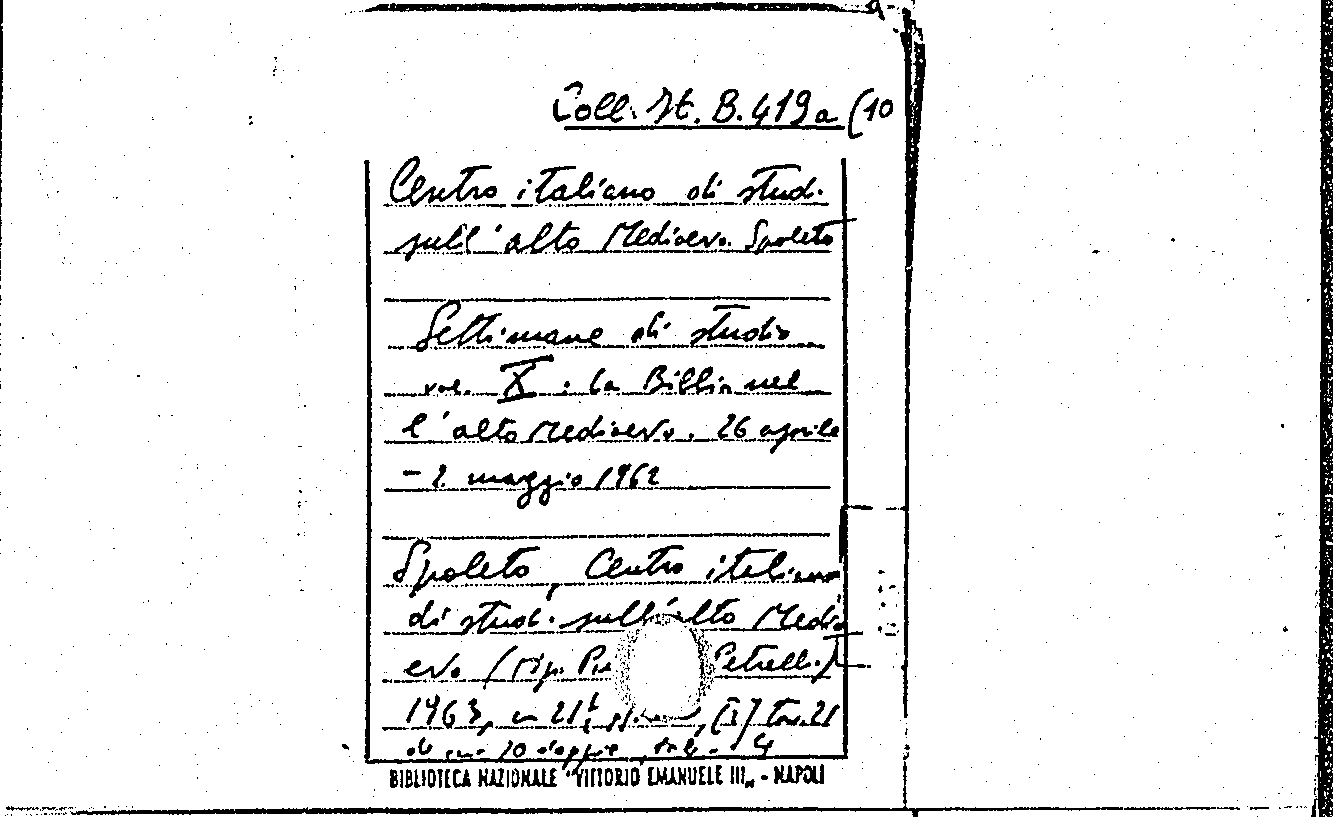 Coll. It. B. 419a (10
Centro italiano di studi
sull'alto Medioevo. Spoleto
Settimane di studio
vol. X : la Bibbia nel
l'alto Medioevo. 26 aprile
- 2 maggio 1962
Spoleto, Centro italiano
di studi sull'alto Medio
evo (tip. Petrelli)
1963, in 21
di cui 10 doppie
BIBLIOTECA NAZIONALE "VITTORIO EMANUELE III„ - NAPOLI